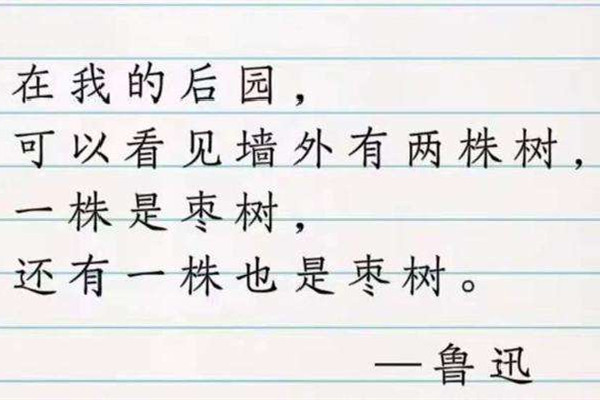 在我的后园，
可以看见墙外有两株树，
一株是枣树，
还有一株也是枣树。
—鲁迅